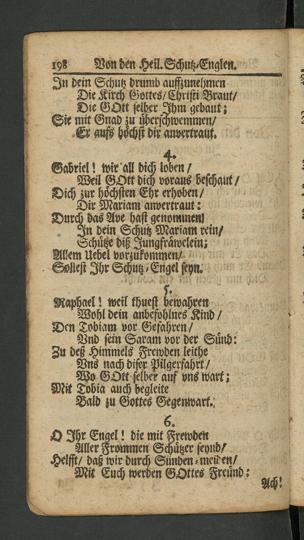 198 Von den Heil. Schutz-Englen.
In dein Schutz drumb auffzunehmen
Die Kirch Gottes/ Christi Braut/
Die GOtt selber Ihm gebaut;
Sie mit Gnad zu überschwemmen/
Er aufs höchst dir anvertraut.
4.
Gabriel! wir all dich loben/
Weil GOtt dich voraus beschaut/
Dich zur höchsten Ehr erhoben/
Dir Mariam anvertraut:
Durch das Ave hast genommen
In dein Schutz Mariam rein/
Schütze diß Jungfräwelein;
Allem Uebel vorzukommen/
Sollest Ihr Schutz-Engel seyn.
5.
Raphael! weil thuest bewahren
Wohl dein anbefohlnes Kind/
Den Tobiam vor Gefahren/
Vnd sein Saram vor der Sünd:
Zu deß Himmels Frewden leithe
Vns nach diser Pilgerfahrt/
Wo GOtt selber auf vns wart;
Mit Tobia auch begleite
Bald zu Gottes Gegenwart.
6.
O Ihr Engel! die mit Frewden
Aller Frommen Schützer seynd/
Helfft/ daß wir durch Sünden-meiden/
Mit Euch werden GOttes Freünd:
Ach!